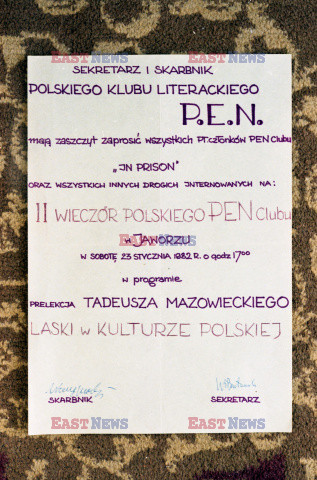 EAST NEWS
SEKRETARZ I SKARBNIK
POLSKIEGO KLUBU LITERACKIEGO
P.E.N.
mają zaszczyt zaprosić wszystkich PT.członków PEN Clubu
„IN PRISON"
ORAZ WSZYSTKICH INNYCH DROGICH INTERNOWANYCH NA:
II WIECZÓR POLSKIEGO PEN Clubu
EAST NEWS
w JAWORZU
w SOBOTĘ 23 STYCZNIA 1982 R. o godz 17⁰⁰
w programie
PRELEKCJA TADEUSZA MAZOWIECKIEGO
LASKI w KULTURZE POLSKIEJ
SKARBNIK SEKRETARZ
EAST NEWS